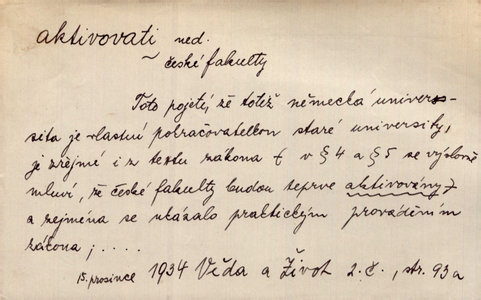 aktivovati ned.
~ české fakulty
Toto pojetí, že totiž německá univer-
sita je vlastní pokračovatelkou staré university,
je zřejmé i z textu zákona ( v § 4 a § 5 se výslovně
mluví, že české fakulty budou teprve aktivovány)
a zejména se ukázalo praktickým prováděním
zákona ; . . . .
15. prosince 1934 Věda a Život 2. č., str. 93a